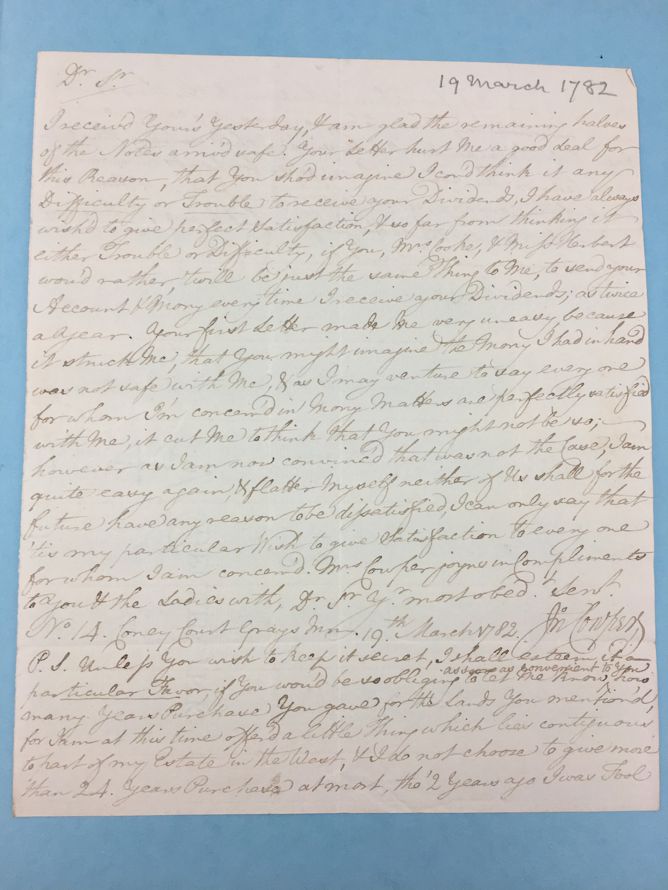 19 March 1782
Dr. Sr.
I receiv'd Your's Yesterday, & am glad the remaining halves
of the Notes arriv'd safe. Your Letter hurt Me a good deal for
this Reason, that You shod imagine I cod think it any
Difficulty or Trouble to receive your Dividends, I have always
wish'd to give perfect Satisfaction, & so far from thinking it
either Trouble or Difficulty, if You, Mrs Cocke, & Miss Herbert
wou'd rather, 'twill be just the same Thing to Me, to send your
Account & Mony every time I receive your Dividends; as twice
a Year. Your first Letter made Me very uneasy because
it struck Me, that You might imagine the Mony I had in hand
was not safe with Me, & as I may venture to say every one
for whom I'm concern'd in Mony Matters are perfectly satisfied
with Me, it cut Me to think that You might not be so;
however as I am now convinc'd that was not the Case, I am
quite easy again, & flatter Myself neither of Us shall for the
future have any reason to be dissatisfied, I can only say that
'tis my particular Wish to give Satisfaction to every one
for whom I am concern'd. Mrs Cowper joyns in Compliments
to You & the Ladies with, Dr. Sr. Yr. most obedt. Servt.
No. 14. Coney Court Grays Inn. 19th March 1782. Jn Cowper
P. S. Unless You wish to keep it secret, I shall esteem it a
as soon as convenient to You
particular Favor, if You wou'd be so obliging to let Me know how
many Years Purchase You gave for the Lands You mention'd,
for I am at this time offer'd a little Thing which lies contiguous
to part of my Estate in the West, & I do not choose to give more
than 24. Years Purchase at most, tho' 2 Years ago I was Fool